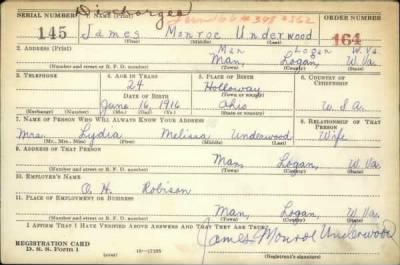 Discharged
SERIAL NUMBER 1. NAME (Print) ORDER NUMBER
145 James Monroe Underwood 164
2. ADDRESS (Print) Man Logan W. Va.
Man, Logan, W. Va.
(Number and street or R. F. D. number) (Town) (County) (State)
3. TELEPHONE 4. AGE IN YEARS 5. PLACE OF BIRTH 6. COUNTRY OF CITIZENSHIP
24 Holloway
DATE OF BIRTH (Town or county)
June 16, 1916 Ohio U.S.A.
(Exchange) (Number) (Mo.) (Day) (Yr.) (State or country)
7. NAME OF PERSON WHO WILL ALWAYS KNOW YOUR ADDRESS 8. RELATIONSHIP OF THAT PERSON
Mrs. Lydia Melissa Underwood Wife
(Mr., Mrs., Miss) (First) (Middle) (Last)
9. ADDRESS OF THAT PERSON
Man, Logan, W. Va.
(Number and street or R. F. D. number) (Town) (County) (State)
10. EMPLOYER'S NAME
O. H. Robison
11. PLACE OF EMPLOYMENT OR BUSINESS
Man, Logan, W. Va.
(Number and street or R. F. D. number) (Town) (County) (State)
I AFFIRM THAT I HAVE VERIFIED ABOVE ANSWERS AND THAT THEY ARE TRUE.
REGISTRATION CARD
D. S. S. Form 1 (over) 16—17105 James Monroe Underwood
(Registrant's signature)